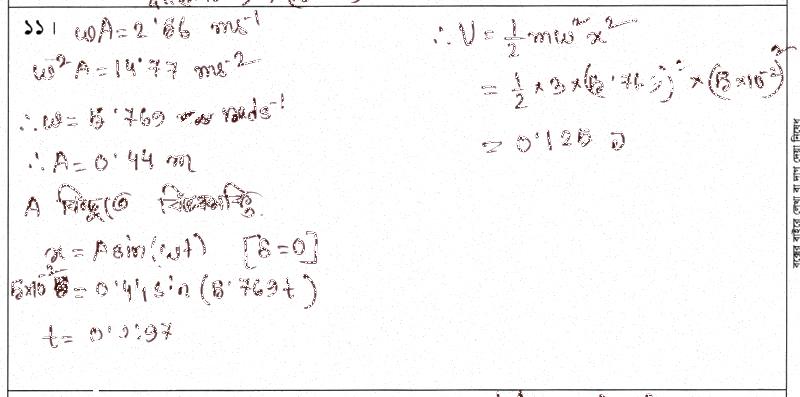 ১১। ωA = 2.56 ms⁻¹
ω²A = 14.77 ms⁻²
∴ ω = 5.769 rads⁻¹
∴ A = 0.44 m
A বিন্দুতে বিভবশক্তি
x = A sin(ωt) [δ = 0]
5×10⁻² = 0.44 sin(5.769t)
t =
∴ U = ½ mω²x²
= ½ × 3 × (5.769)² × (5×10⁻²)²
= 0.125 J
বক্সের বাইরে লেখা বা দাগ দেয়া নিষেধ